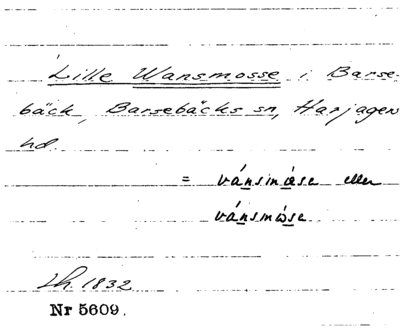 Lille Wansmosse i Barse-
bäck, Barsebäcks sn, Harjagers
hd.
= vánsmòse eller
vánsmòse
Lh. 1832
Nr 5609.